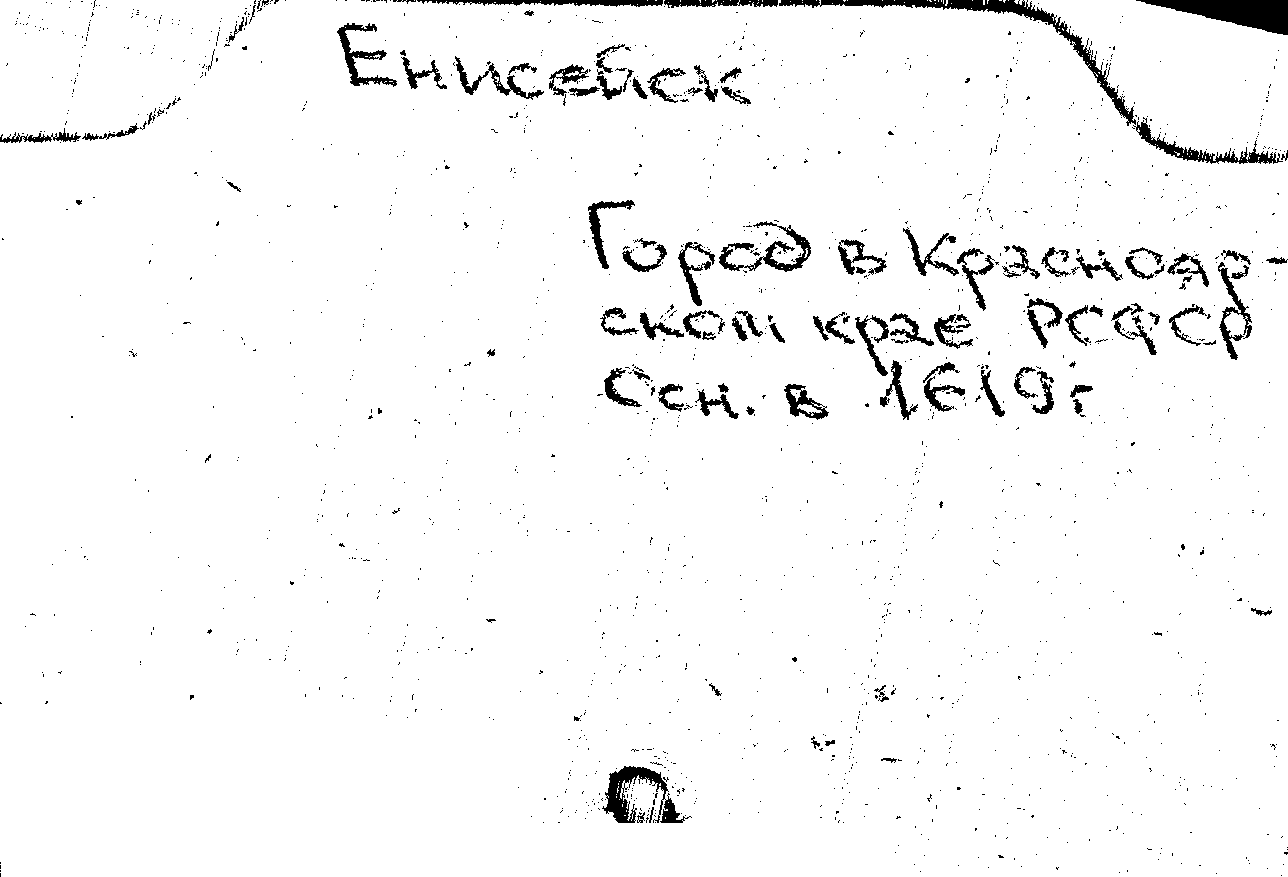 Енисейск
Город в Краснояр-
ском крае РСФСР
Осн. в 1619 г